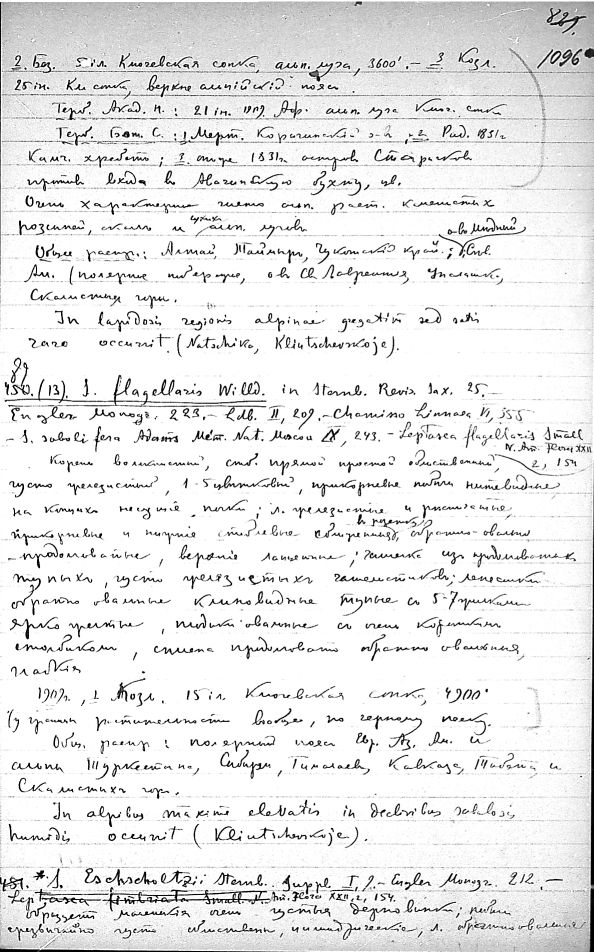 1096
2. Без. 5 іл. Ключевская сопка, альп. луга, 3600'. – 3 Козл.
25 іл. Кл. сопка, верхне альпійскій пояс.
Герб. Акад. Н.: 21 іл. 1909. альп. луга Ключ. сопк
Герб. Бот. С.: 1 Мерт. 2 Рад. 1831 г
Камч. хребетъ; 1831 г. островъ Старичковъ
противъ входа въ Авачинскую бухту, цв.
Очень характерно альп. раст. каменистых
розсыпей, скалъ и сухихъ альп. луговъ
о-въ Мѣдный
Общее распр.: Алтай, Таймыръ, Чукотскій край; Сѣв.
Ам. (полярные о-въ Св. Лаврентія, Уналашка,
Скалистыя горы.
In lapidosis regionis alpinae gregatim sed satis
raro occurrit. (Natschika, Kliutschevskoje).
89
450. (13). S. flagellaris Willd. in Sternb. Revis. Sax. 25. –
Engler Monogr. 223. – Ldb. II, 209. – Chamisso Linnaea VI, 555
– S. sobolifera Adams Mém. Nat. Moscou IX, 243. – Leptasea flagellaris Small
N. Am. Flora XXII
2, 154
Корень волокнистый, стб. прямой простой облиственный,
густо железистый, 1-5 цвѣтковый, прикорневые побѣги нитевидные,
на концахъ несущіе почки; л. железистые и рѣснитчатые,
прикорневые и нижніе стеблевые въ розетку, обратно-овально
-продолговатые, верхніе ланцетные; чашечка изъ продолговатыхъ
тупыхъ, густо железистыхъ чашелистиковъ; лепестки
обратно овальные клиновидные тупые съ 5-7 жилками
ярко желтые, овальные съ очень короткими
столбиками, сѣмена продолговато обратно овальныя,
гладкія
1909 г., 1 Козл. 15 іл. Ключевская сопка, 4900'
(у границы растительности вообще, по черному песку.
Общ. распр.: полярный поясъ Евр. Аз. Ам. и
альпы Туркестана, Сибири, Гималаевъ, Кавказа, Тибета и
Скалистыхъ горъ.
In alpibus maxime elevatis in declivibus sabulosis
humidis occurrit (Kliutschevskoje).
451. * S. Eschscholtzii Sternb. Suppl. I, 9. – Engler Monogr. 212. –
Leptasea fimbriata Small N. Am. Flora XXII, 2, 154.
образуетъ маленькія очень густыя дерновинки; побѣги
чрезвычайно густо облиствены, цилиндрическіе, л. обратноовальные